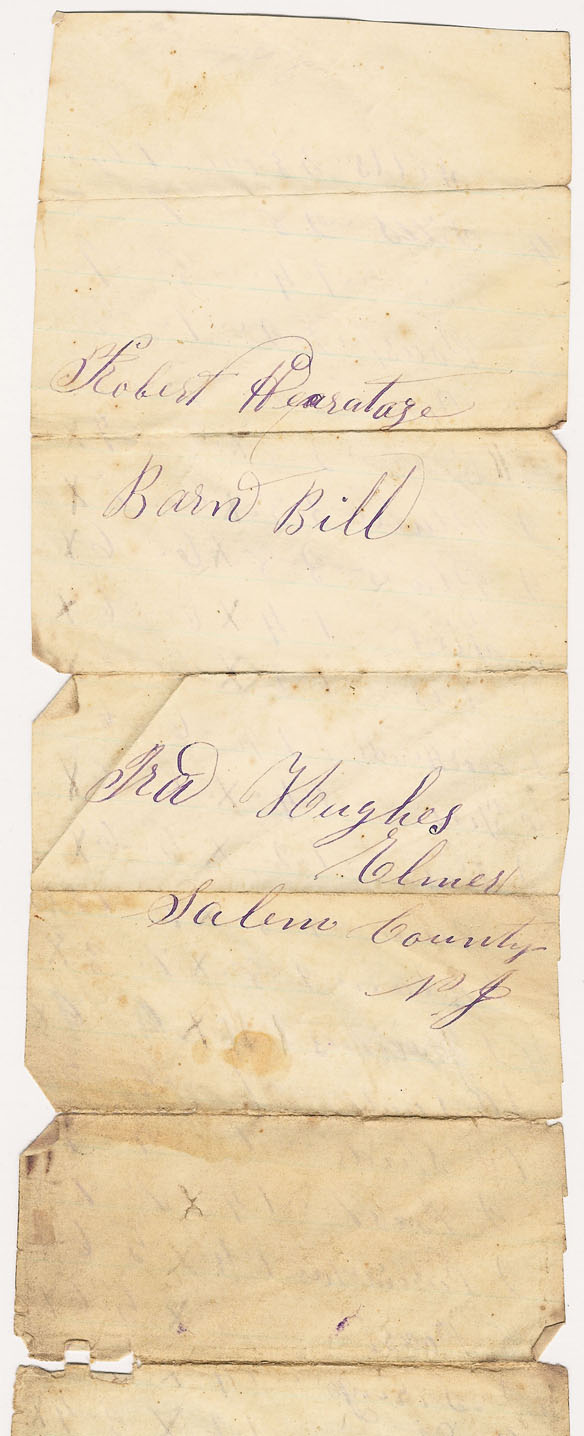 Robert Hearatage
Barn Bill
Ira Hughes
Elmer
Salem County
N J